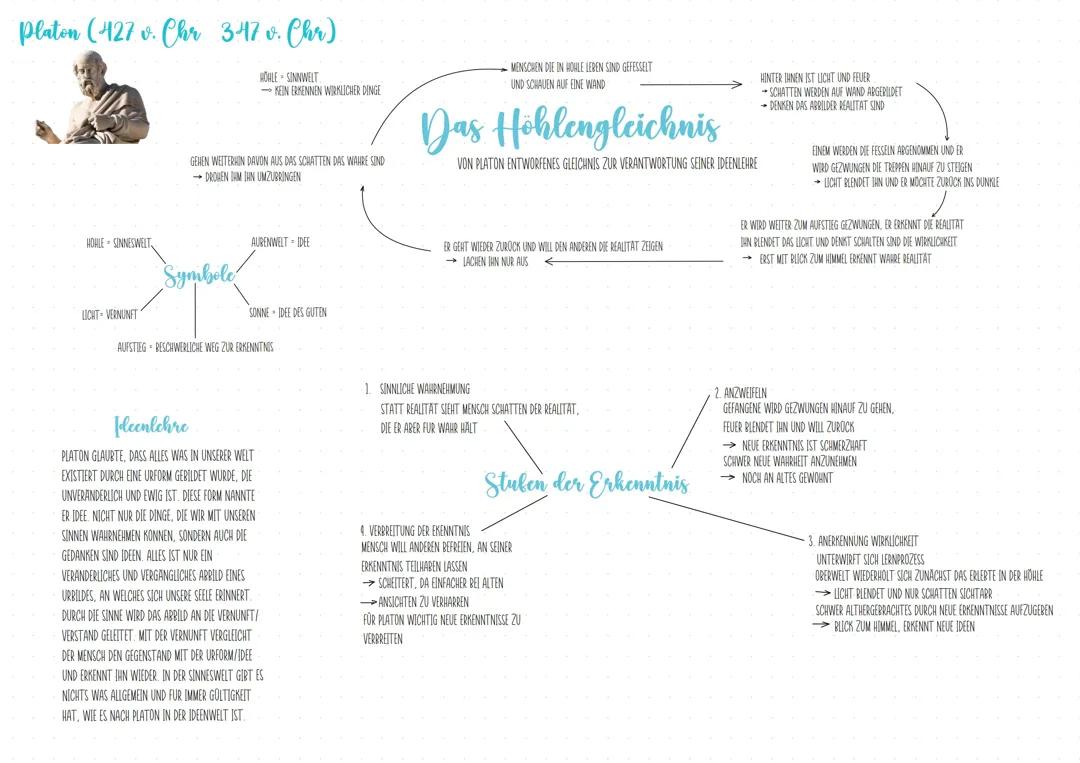 Platon (427 v. Chr 347 v. Chr)
HÖHLE = SINNWELT
→ KEIN ERKENNEN WIRKLICHER DINGE
MENSCHEN DIE IN HÖHLE LEBEN SIND GEFESSELT
UND SCHAUEN AUF EINE WAND
HINTER IHNEN IST LICHT UND FEUER
→ SCHATTEN WERDEN AUF WAND ABGEBILDET
→ DENKEN DAS ABBILDER REALITÄT SIND
Das Höhlengleichnis
VON PLATON ENTWORFENES GLEICHNIS ZUR VERANTWORTUNG SEINER IDEENLEHRE
EINEM WERDEN DIE FESSELN ABGENOMMEN UND ER
WIRD GEZWUNGEN DIE TREPPEN HINAUF ZU STEIGEN
→ LICHT BLENDET IHN UND ER MÖCHTE ZURÜCK INS DUNKLE
ER WIRD WEITER ZUM AUFSTIEG GEZWUNGEN, ER ERKENNT DIE REALITÄT
IHN BLENDET DAS LICHT UND DENKT SCHALTEN SIND DIE WIRKLICHKEIT
→ ERST MIT BLICK ZUM HIMMEL ERKENNT WAHRE REALITÄT
ER GEHT WIEDER ZURÜCK UND WILL DEN ANDEREN DIE REALITÄT ZEIGEN
→ LACHEN IHN NUR AUS
GEHEN WEITERHIN DAVON AUS DAS SCHATTEN DAS WAHRE SIND
→ DROHEN IHM IHN UMZUBRINGEN
HÖHLE = SINNESWELT
AUßENWELT = IDEE
Symbole
LICHT= VERNUNFT
SONNE = IDEE DES GUTEN
AUFSTIEG = BESCHWERLICHE WEG ZUR ERKENNTNIS
Ideenlehre
PLATON GLAUBTE, DASS ALLES WAS IN UNSERER WELT
EXISTIERT DURCH EINE URFORM GEBILDET WURDE, DIE
UNVERÄNDERLICH UND EWIG IST. DIESE FORM NANNTE
ER IDEE. NICHT NUR DIE DINGE, DIE WIR MIT UNSEREN
SINNEN WAHRNEHMEN KÖNNEN, SONDERN AUCH DIE
GEDANKEN SIND IDEEN. ALLES IST NUR EIN
VERÄNDERLICHES UND VERGÄNGLICHES ABBILD EINES
URBILDES, AN WELCHES SICH UNSERE SEELE ERINNERT.
DURCH DIE SINNE WIRD DAS ABBILD AN DIE VERNUNFT/
VERSTAND GELEITET. MIT DER VERNUNFT VERGLEICHT
DER MENSCH DEN GEGENSTAND MIT DER URFORM/IDEE
UND ERKENNT IHN WIEDER. IN DER SINNESWELT GIBT ES
NICHTS WAS ALLGEMEIN UND FÜR IMMER GÜLTIGKEIT
HAT, WIE ES NACH PLATON IN DER IDEENWELT IST.
1. SINNLICHE WAHRNEHMUNG
STATT REALITÄT SIEHT MENSCH SCHATTEN DER REALITÄT,
DIE ER ABER FÜR WAHR HÄLT
2. ANZWEIFELN
GEFANGENE WIRD GEZWUNGEN HINAUF ZU GEHEN,
FEUER BLENDET IHN UND WILL ZURÜCK
→ NEUE ERKENNTNIS IST SCHMERZHAFT
SCHWER NEUE WAHRHEIT ANZUNEHMEN
→ NOCH AN ALTES GEWÖHNT
Stufen der Erkenntnis
4. VERBREITUNG DER EKENNTNIS
MENSCH WILL ANDEREN BEFREIEN, AN SEINER
ERKENNTNIS TEILHABEN LASSEN
→ SCHEITERT, DA EINFACHER BEI ALTEN
→ ANSICHTEN ZU VERHARREN
FÜR PLATON WICHTIG NEUE ERKENNTNISSE ZU
VERBREITEN
3. ANERKENNUNG WIRKLICHKEIT
UNTERWIRFT SICH LERNPROZESS
OBERWELT WIEDERHOLT SICH ZUNÄCHST DAS ERLEBTE IN DER HÖHLE
→ LICHT BLENDET UND NUR SCHATTEN SICHTABR
SCHWER ALTHERGEBRACHTES DURCH NEUE ERKENNTNISSE AUFZUGEBEN
→ BLICK ZUM HIMMEL, ERKENNT NEUE IDEEN